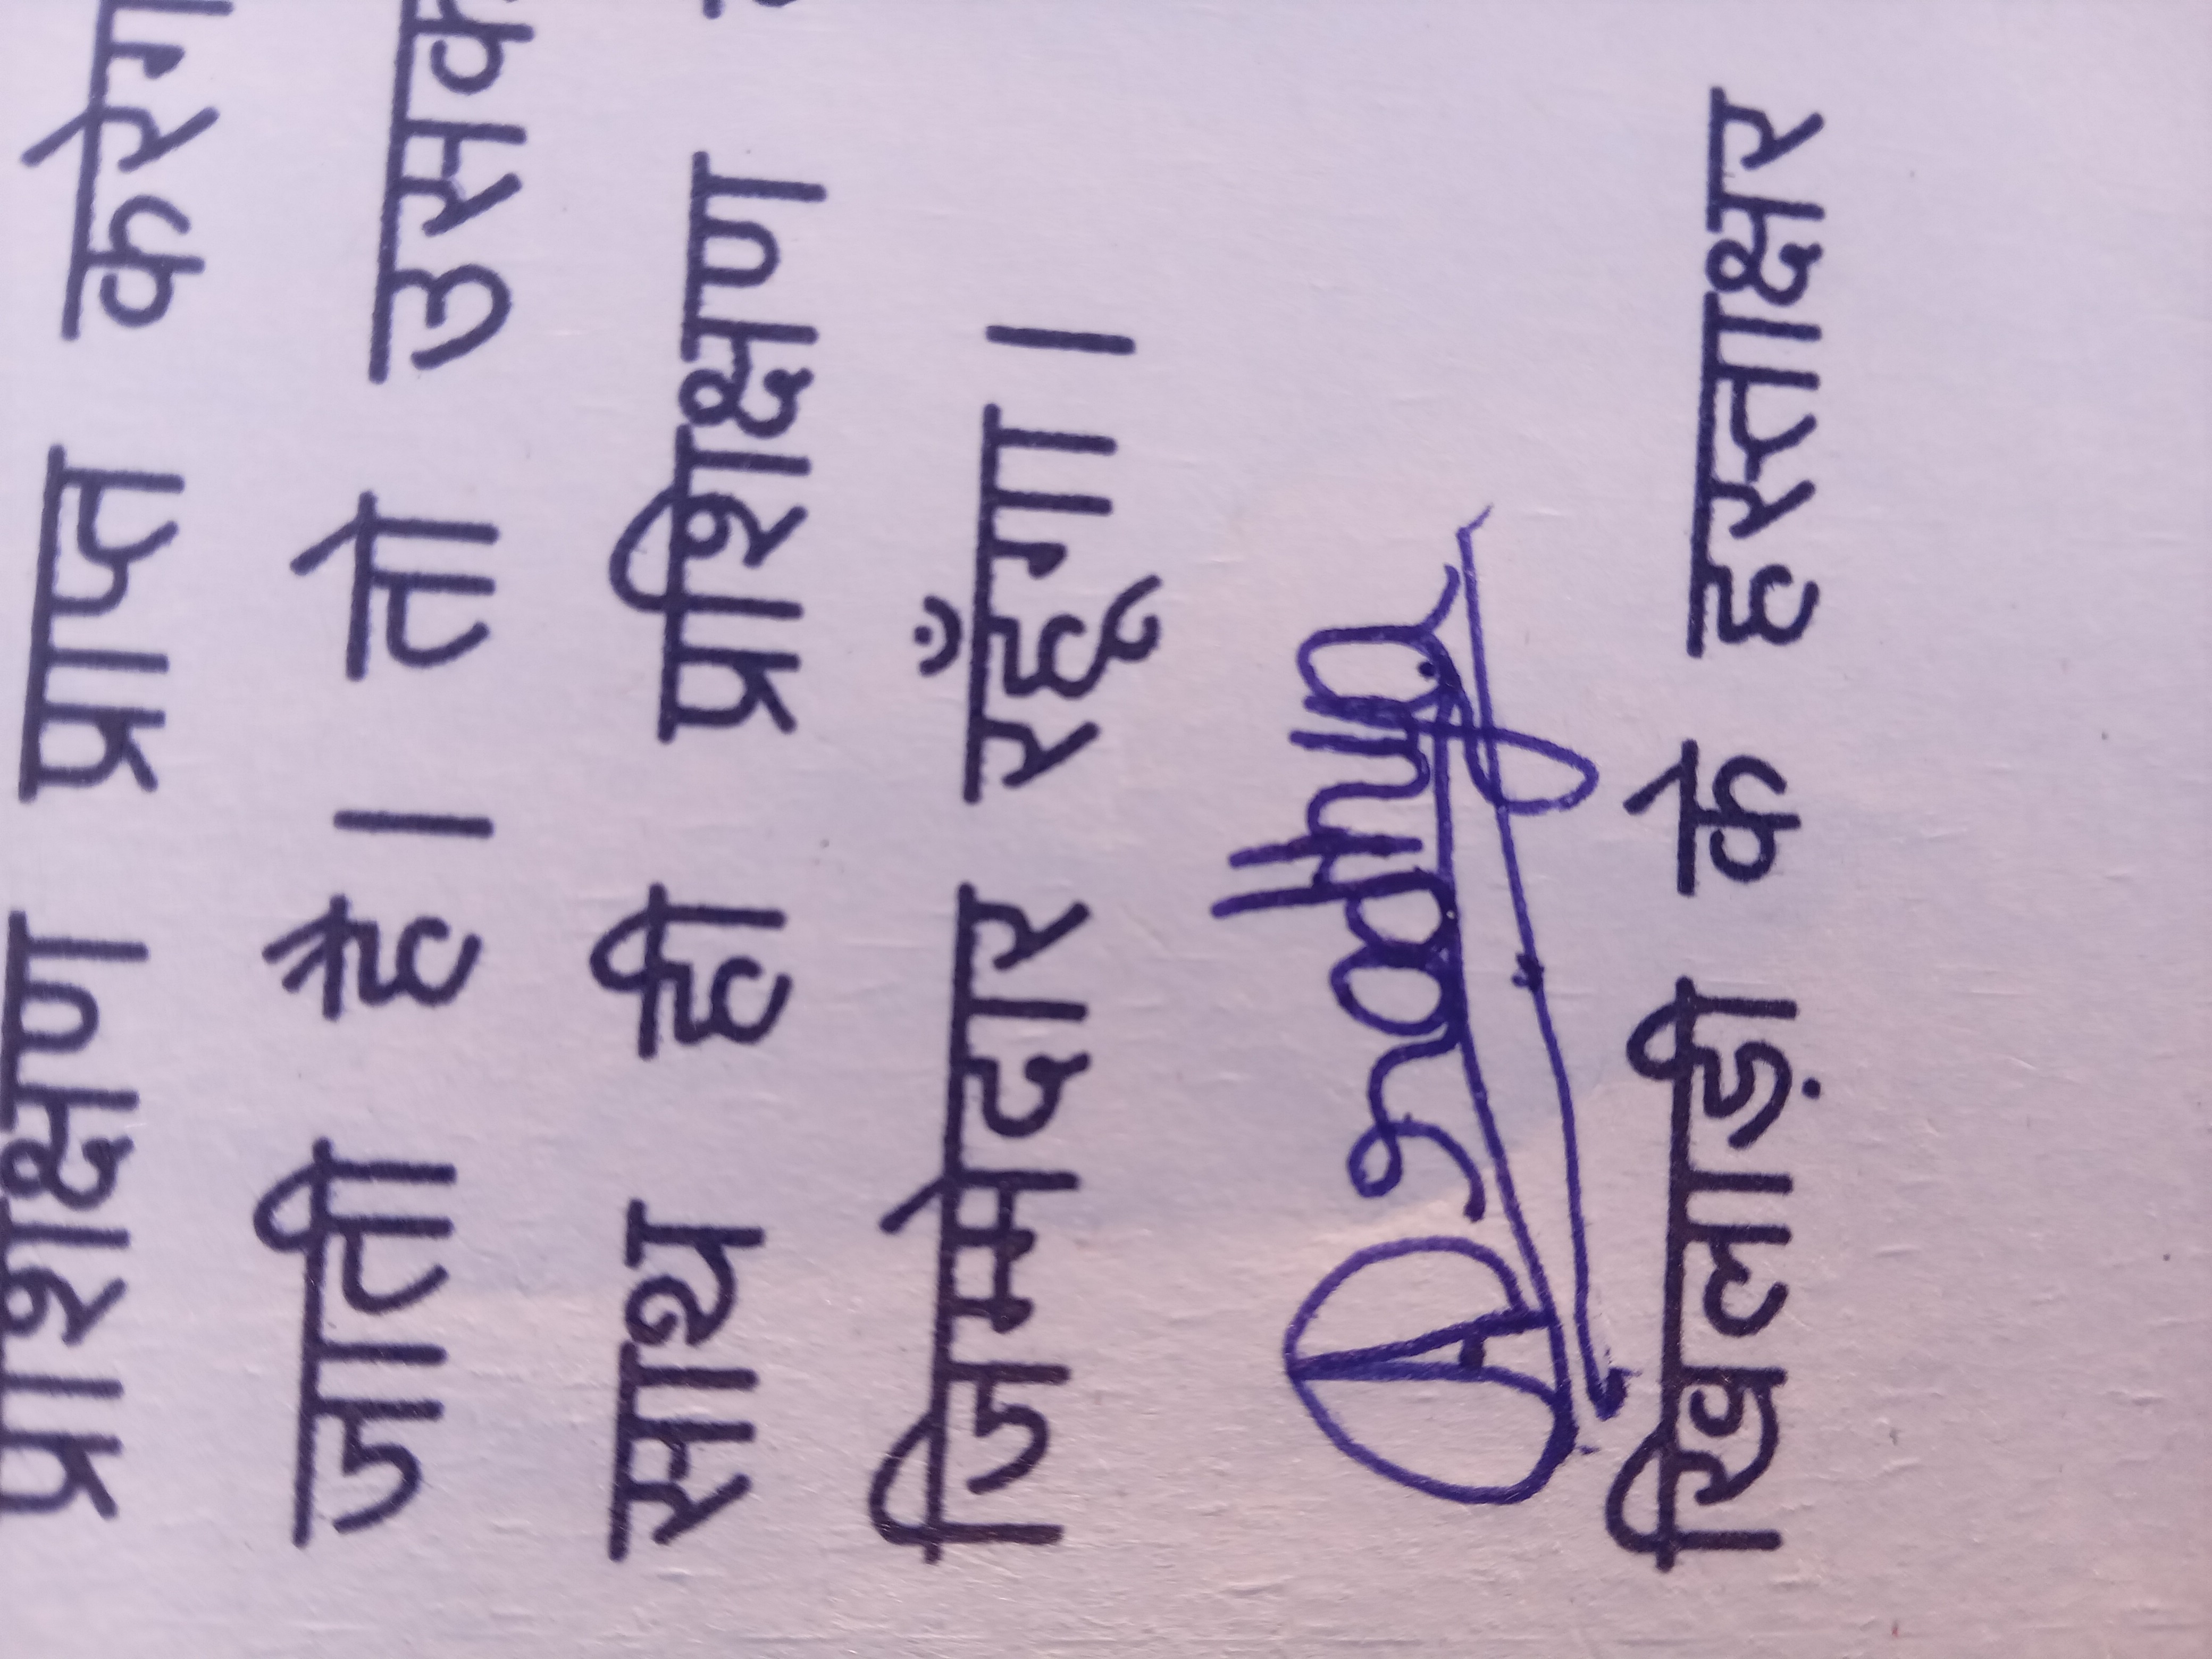 प्रशिक्षण प्राप्त करेग
जाती है। तो उसक
साथ ही प्रशिक्षण
जिम्मेदार रहूँगा।
खिलाड़ी के हस्ताक्षर